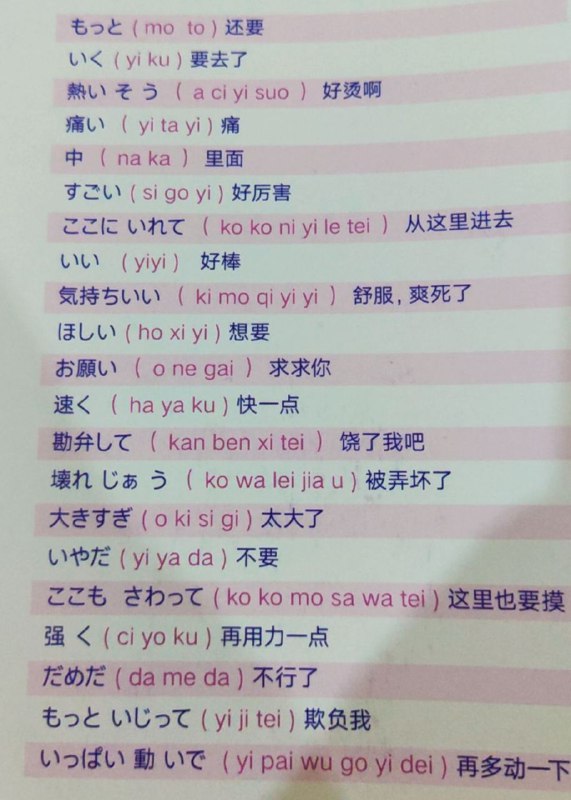 もっと ( mo to ) 还要
いく ( yi ku ) 要去了
熱い そ う ( a ci yi suo ) 好烫啊
痛い ( yi ta yi ) 痛
中 ( na ka ) 里面
すごい ( si go yi ) 好厉害
ここに いれて ( ko ko ni yi le tei ) 从这里进去
いい ( yiyi ) 好棒
気持ちいい ( ki mo qi yi yi ) 舒服，爽死了
ほしい ( ho xi yi ) 想要
お願い ( o ne gai ) 求求你
速く ( ha ya ku ) 快一点
勘弁して ( kan ben xi tei ) 饶了我吧
壊れ じぁ う ( ko wa lei jia u ) 被弄坏了
大きすぎ ( o ki si gi ) 太大了
いやだ ( yi ya da ) 不要
ここも さわって ( ko ko mo sa wa tei ) 这里也要摸
强 く ( ci yo ku ) 再用力一点
だめだ ( da me da ) 不行了
もっと いじって ( yi ji tei ) 欺负我
いっぱい 動 いで ( yi pai wu go yi dei ) 再多动一下